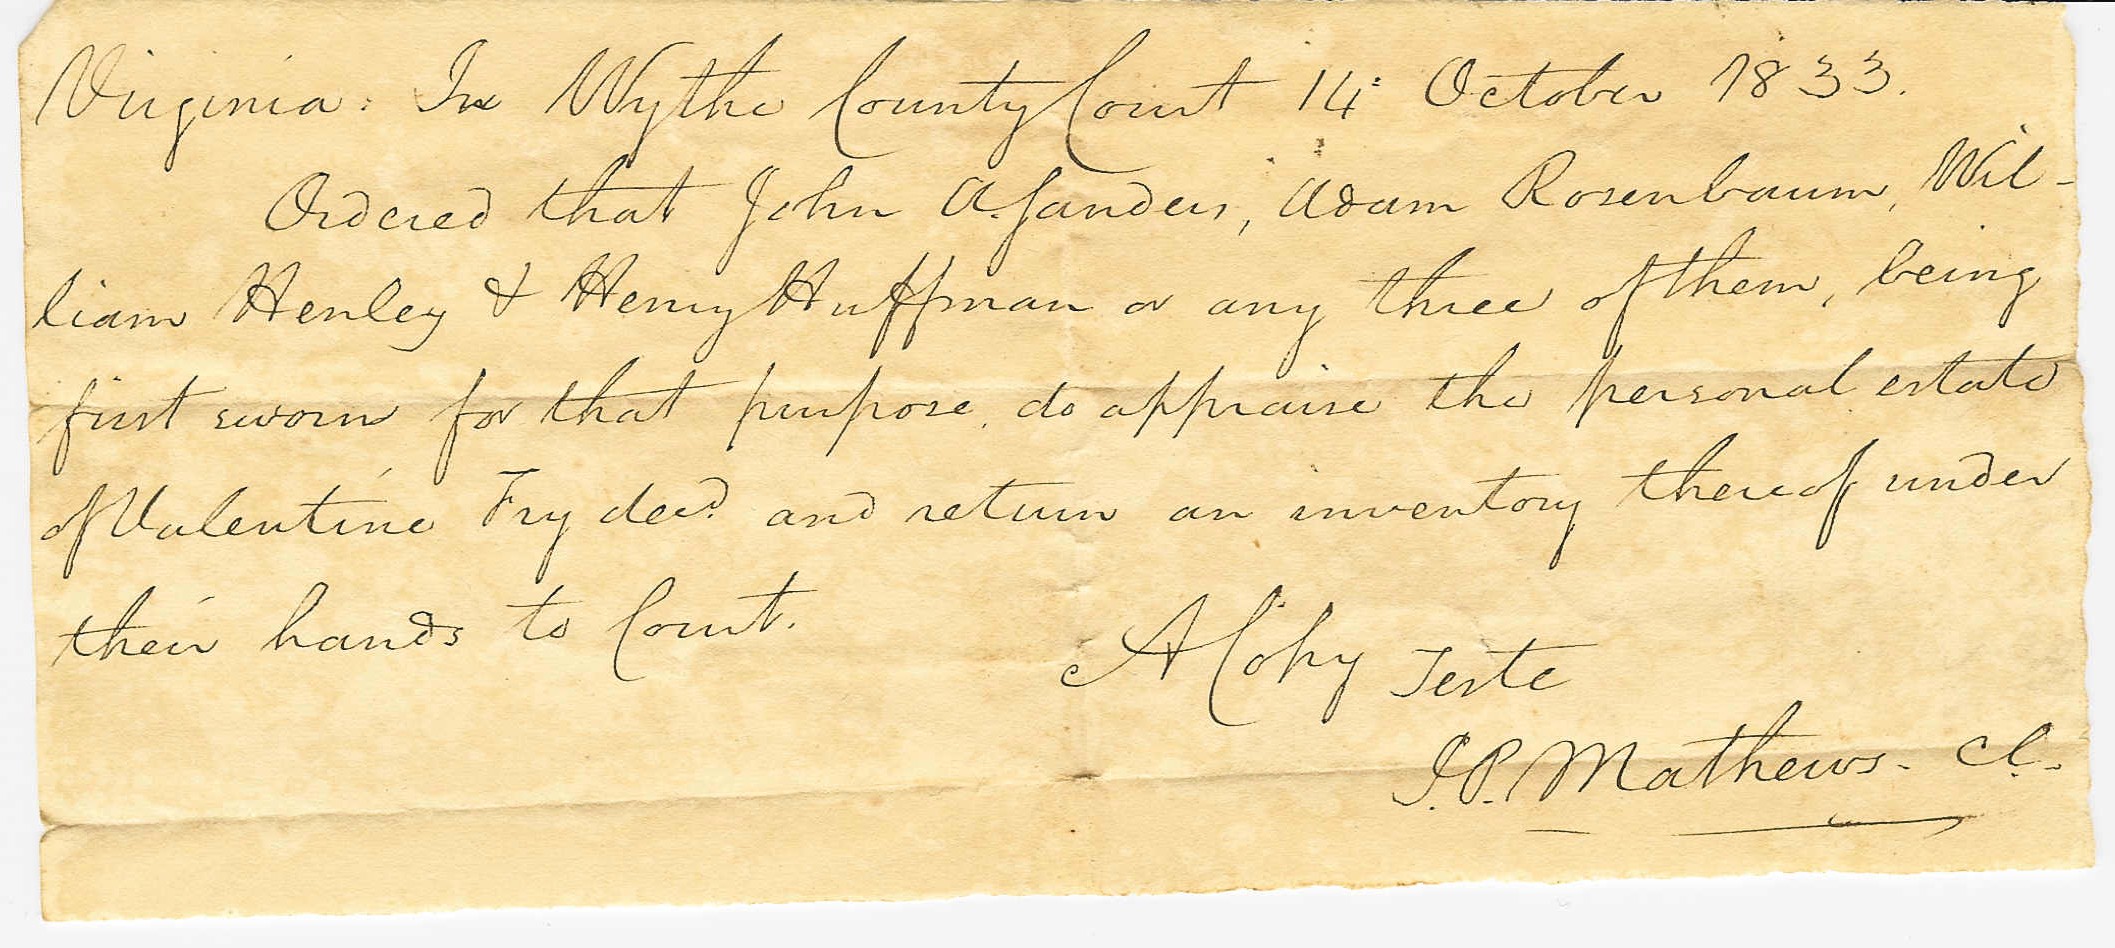 Virginia: In Wythe County Court 14: October 1833.
Ordered that John A. Sanders, Adam Rosenbaum, Wil-
liam Henley & Henry Huffman or any three of them, being
first sworn for that purpose, do appraise the personal estate
of Valentine Fry decd. and return an inventory thereof under
their hands to Court.
A Copy Teste
J.P. Mathews. Cl.